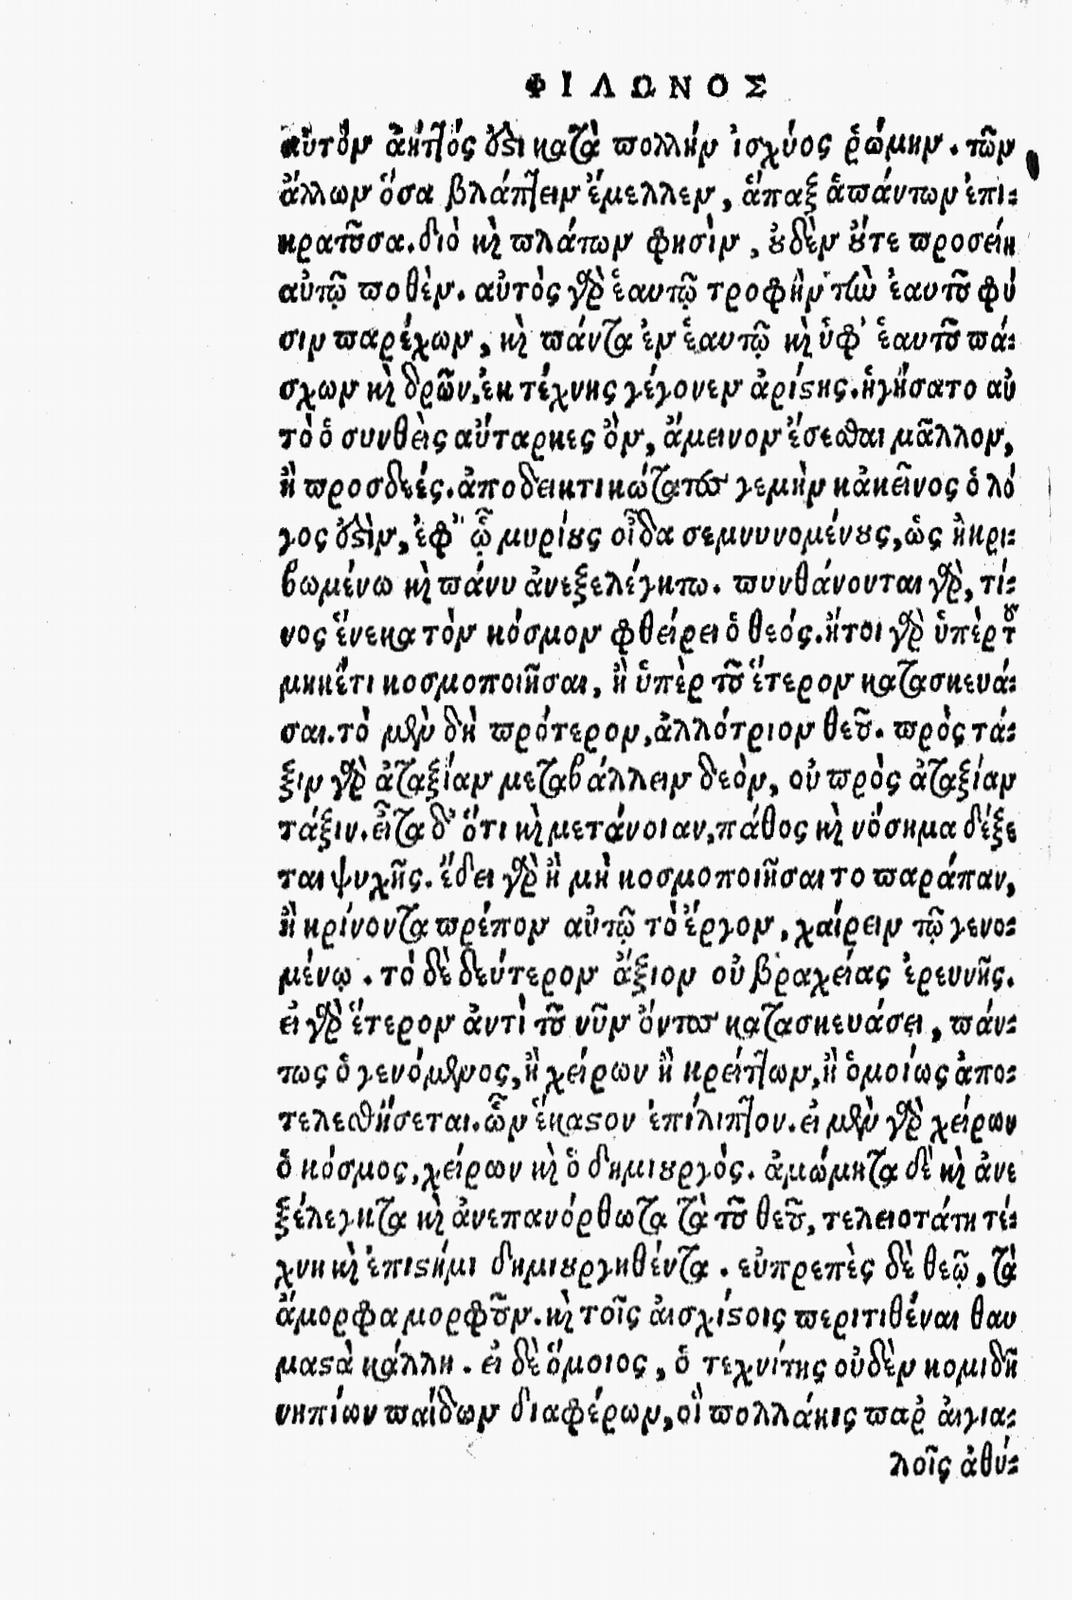 ΦΙΛΩΝΟΣ
αὐτὸν ἀήττητός ἐστι κατὰ πολλὴν ἰσχύος ῥώμην. τῶν
ἄλλων ὅσα βλάπτειν ἔμελλεν, ἅπαξ ἁπάντων ἐπι-
κρατοῦσα. διὸ καὶ πλάτων φησὶν, οὐδὲν οὔτε προσείη
αὐτῷ ποθὲν. αὐτὸς γὰρ ἑαυτῷ τροφὴν τὴν ἑαυτοῦ φύ
σιν παρέχων, καὶ πάντα ἐν ἑαυτῷ καὶ ὑφ' ἑαυτοῦ πά-
σχων καὶ δρῶν, ἐκ τέχνης γέγονεν ἀρίστης. ἡγήσατο αὐ
τὸ ὁ συνθεὶς αὔταρκες ὂν, ἄμεινον ἔσεσθαι μᾶλλον,
ἢ προσδεές. ἀποδεικτικώτατος γεμὴν κἀκεῖνος ὁ λό
γος ἐστὶν, ἐφ' ᾧ μυρίους οἶδα σεμνυνομένους, ὡς ἠκρι-
βωμένω καὶ πάνυ ἀνεξελέγκτω. πυνθάνονται γὰρ, τί-
νος ἕνεκα τὸν κόσμον φθείρει ὁ θεός. ἤτοι γὰρ ὑπὲρ τοῦ
μηκέτι κοσμοποιῆσαι, ἢ ὑπὲρ τοῦ ἕτερον κατασκευά-
σαι. τὸ μὲν δὴ πρότερον, ἀλλότριον θεοῦ. πρὸς τά-
ξιν γὰρ ἀταξίαν μεταβάλλειν δεὸν, οὐ πρὸς ἀταξίαν
τάξιν. εἶτα δ' ὅτι καὶ μετάνοιαν, πάθος καὶ νόσημα δέξε
ται ψυχῆς. ἔδει γὰρ ἢ μὴ κοσμοποιῆσαι το παράπαν,
ἢ κρίνοντα πρέπον αὐτῷ τὸ ἔργον, χαίρειν τῷ γενο-
μένῳ. τὸ δὲ δεύτερον ἄξιον οὐ βραχείας ἐρευνῆς.
εἰ γὰρ ἕτερον ἀντὶ τοῦ νῦν ὄντος κατασκευάσει, πάν-
τως ὁ γενόμενος, ἢ χείρων ἢ κρείττων, ἢ ὁμοίως ἀπο-
τελεσθήσεται. ὧν ἕκαστον ἐπίλιπτον. εἰ μὲν γὰρ χείρων
ὁ κόσμος, χείρων καὶ ὁ δημιουργός. ἀμώμητα δὲ καὶ ἀνε
ξέλεγκτα καὶ ἀνεπανόρθωτα τὰ τοῦ θεοῦ, τελειοτάτη τέ-
χνη καὶ ἐπιστήμι δημιουργηθέντα. εὐπρεπὲς δὲ θεῷ, τὰ
ἄμορφα μορφοῦν. καὶ τοῖς αἰσχίστοις περιτιθέναι θαυ
μαστὰ κάλλη. εἰ δὲ ὅμοιος, ὁ τεχνίτης οὐδὲν κομιδῆ
νηπίων παίδων διαφέρων, οἳ πολλάκις παρ' αἰγια-
λοῖς ἀθύ-